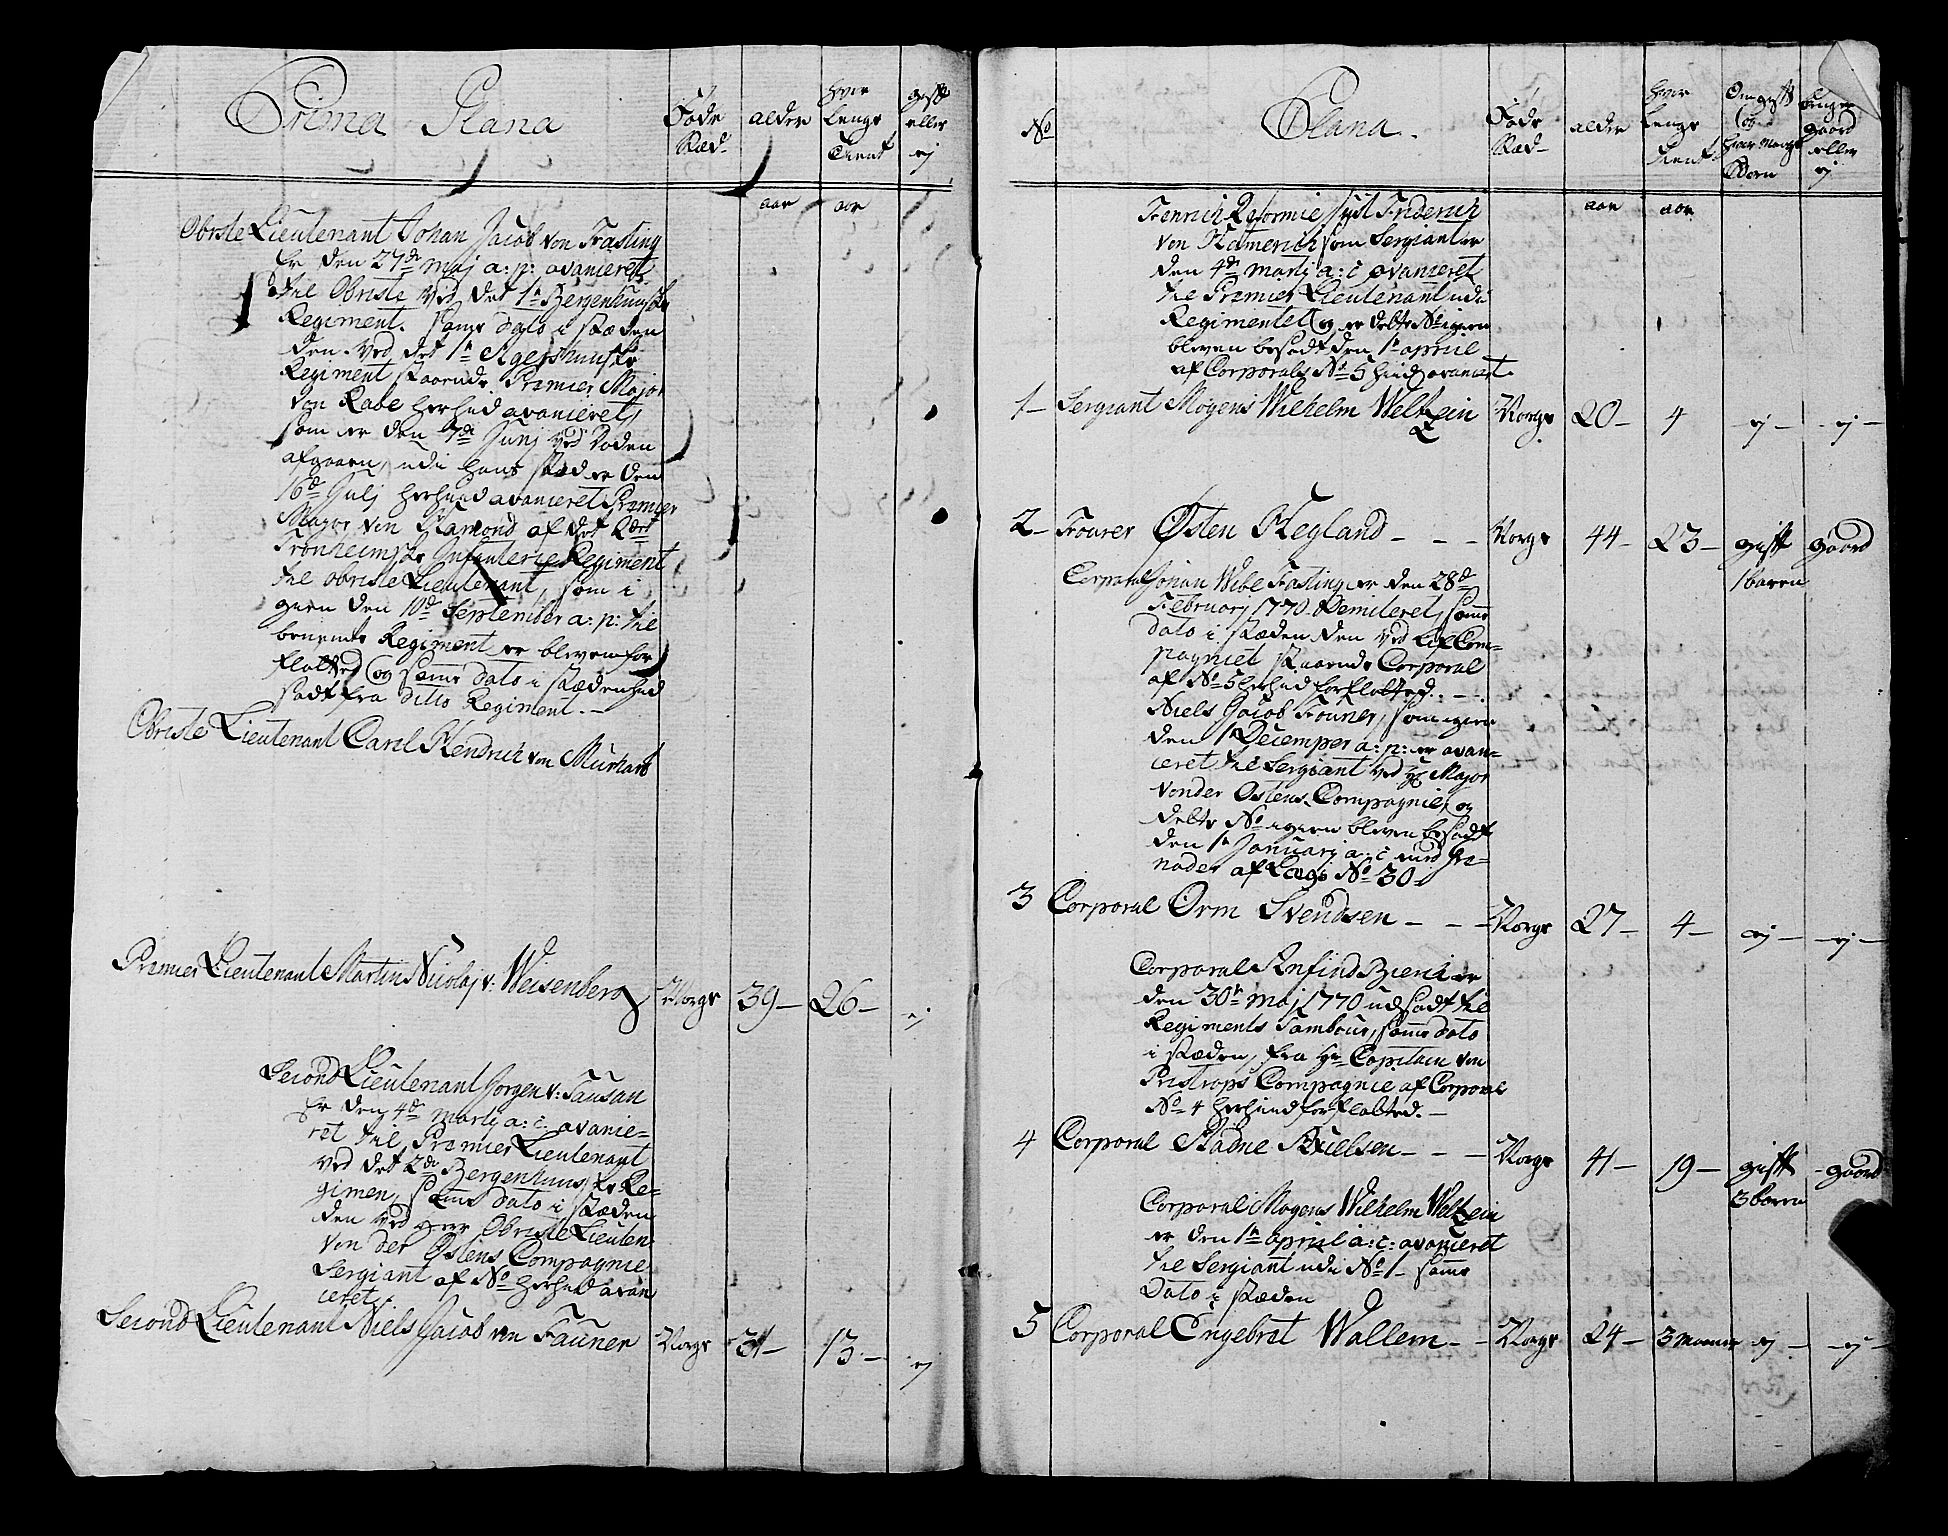 Prima Plana
Føde Stæd
alder
hvor lenge Tient
gift eller ej
aar
aar
Obriste Lieutenant Johan Jacob von Fasting
Er den 27de Maj a: p: avanceret
til Obriste ved det 1te Bergenhuusiske
Regiment. Samme dato i stæden
den ved det 1te Agershuuske
Regiment staaende Premier Major
von Rabe herhid avanceret,
som er den 7de Junj ved Døden
afgaaen, udi hans stæd er den
16de Julj herhid avanceret Premier
Major von of det 2det
Tronheimske Infanterie Regiment
til Obriste Lieutenant, som i
gien den 10de September a: p: til
benemte Regiment er bleven for
fløtted og samme dato i stæden hid
sadt fra ditto Regiment.
Obriste Lieutenant Carel Hendrich von Murhard
Premier Lieutenant Martin Nicolaj v: Weisenberg Norge 39 — 26 — ej
Second Lieutenant Jørgen v: Tausan
Er den 4de Martj a: c. avance-
ret til Premier Lieutenant
ved det 2de Bergenhuuske Re-
gimen, samme dato i stæden
den ved Herr Obriste Lieuten:
von der Ostens Compagnie
Sergiant af No herhid avan
ceret.
Second Lieutenant Niels Jacob von Fauner Norge 31 — 13 — ej
No
Plana.
Føde Stæd
alder
hvor lenge tient
Om gift og hvor mange Børn
Bruger gaard eller ej
aar
aar
Fenrich Reformie Just Friderich
von som Sergiant er
den 4de Martj a: c avanceret
til Premier Lieutenant udi
Regimentet og er dette No igien
bleven besadt den 1te april
af Corporals No 5 hid avancert.
1 — Sergiant Mogens Wilhelm Weltzein Norge 20 — 4 ej — ej —
2 — Fourer Østen Hegland — — — Norge 44 — 23 — gift gaard
1 baren
Corporal Johan Wibe Fasting er den 28de
Februarj 1770 Demiteret, samme
dato i stæden den ved Lif Com-
pagniet staaende Corporal
af No 5 herhid forfløtted.
Niels Jacob Founer, som igien
den 1te Decemper a: p: er avan-
ceret til Sergiant ved Hr Major
vonder Ostens Compagnie, og
dette No igien bleven besadt
den 1te Januarj a: c med Gre-
nader af Logi No 30
3 Corporal Orm Svendsen — — — Norge 27 — 4 — ej — ej —
Corporal Anfind Bierk er
den 30te Maj 1770 udsadt til
Regiments Tambour, samme dato
i stæden, fra Hr Capitain von
Pristrops Compagnie af Corporal
No 4 herhind forfløtted. —
4 Corporal Nielsen — — — Norge 41 — 19 — gift gaard
3 baren
Corporal Mogens Wilhelm Weltzein
er den 1te april a: c: avanceret
til Sergiant udi No 1 — samme
Dato i stæden
5 Corporal Engebret Wallem — — Norge 24 — 3 Maaner ej — ej —